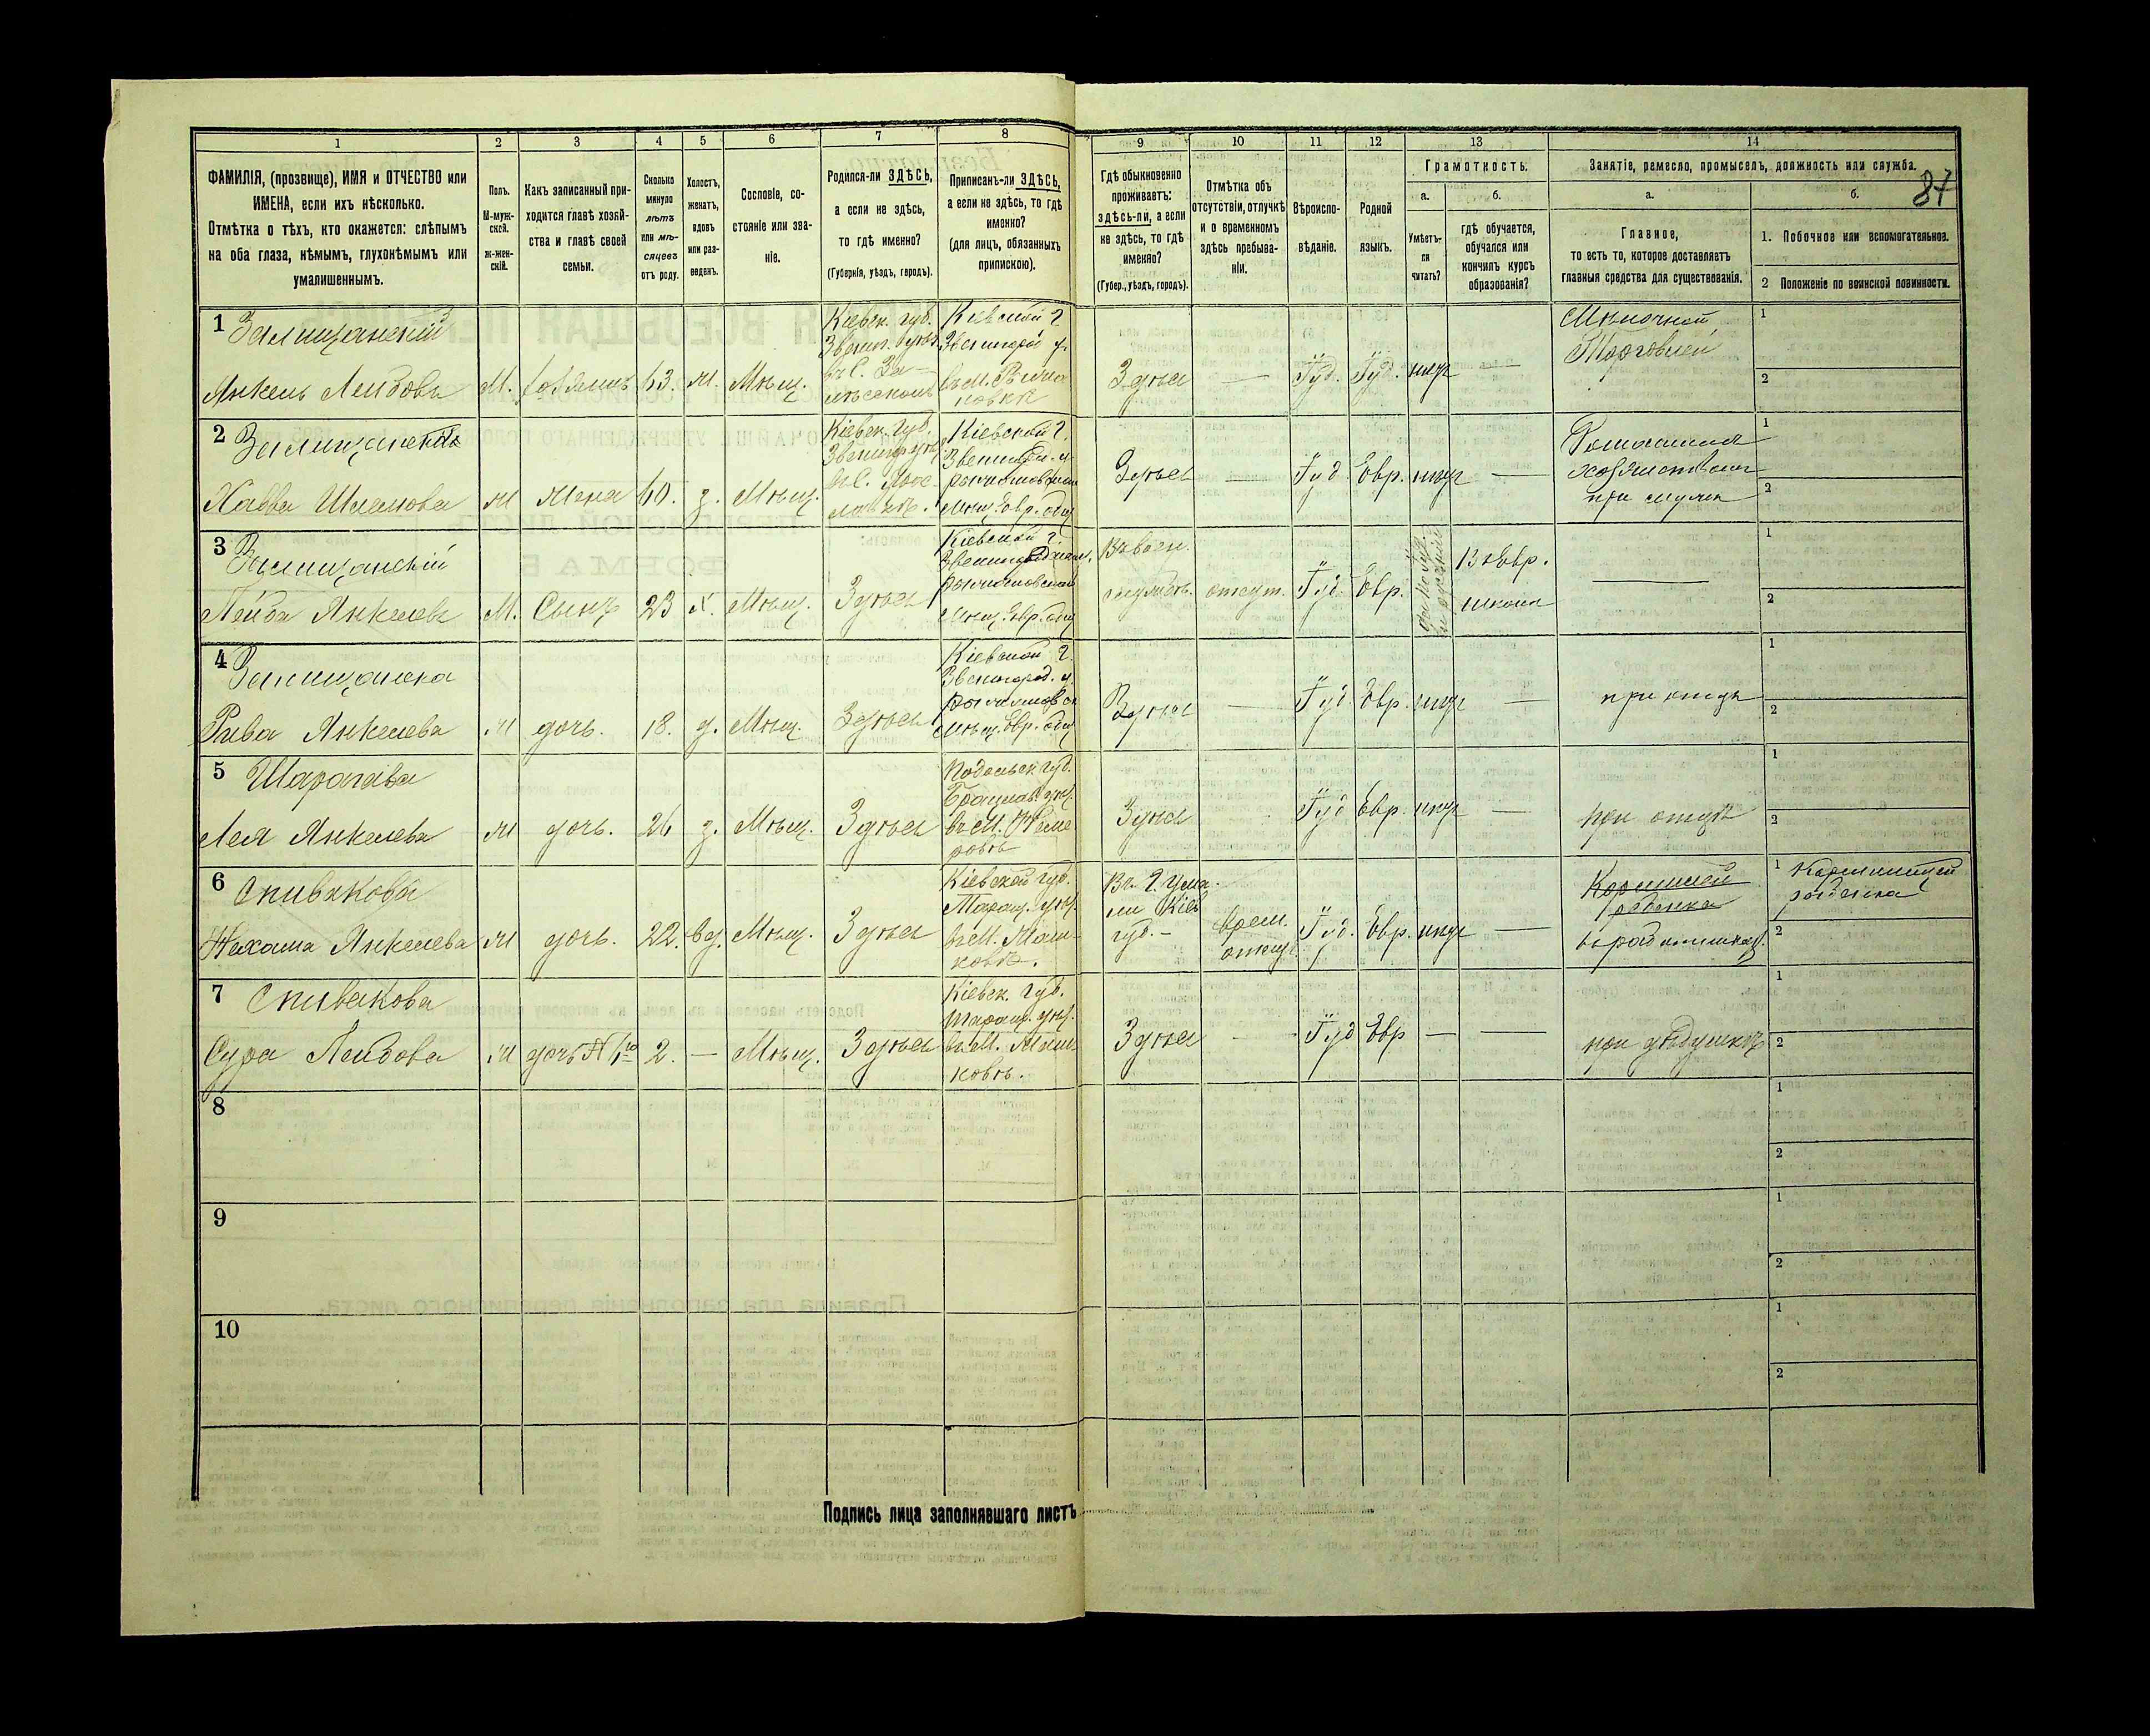 1 2 3 4 5 6 7 8 9 10 11 12 13 14
ФАМИЛІЯ, (прозвище), ИМЯ и ОТЧЕСТВО или
ИМЕНА, если ихъ нѣсколько.
Отмѣтка о тѣхъ, кто окажется: слѣпымъ
на оба глаза, нѣмымъ, глухонѣмымъ или
умалишеннымъ.
Полъ.
М-муж-
ской.
ж-жен-
скій.
Какъ записанный при-
ходится главѣ хозяй-
ства и главѣ своей
семьи.
Сколько
минуло
лѣтъ
или мѣ-
сяцевъ
отъ роду.
Холостъ,
женатъ,
вдовъ
или раз-
веденъ.
Сословіе, со-
стояніе или зва-
ніе.
Родился-ли ЗДѢСЬ,
а если не здѣсь,
то гдѣ именно?
(Губернія, уѣздъ, городъ).
Приписанъ-ли ЗДѢСЬ,
а если не здѣсь, то гдѣ
именно?
(для лицъ, обязанныхъ
припискою).
Гдѣ обыкновенно
проживаетъ:
здѣсь-ли, а если
не здѣсь, то гдѣ
именно?
(Губер., уѣздъ, городъ).
Отмѣтка объ
отсутствіи, отлучкѣ
и о временномъ
здѣсь пребыва-
ніи.
Вѣроиспо-
вѣданіе.
Родной
языкъ.
Грамотность.
а.
Умѣетъ-
ли
читать?
б.
гдѣ обучается,
обучался или
кончилъ курсъ
образованія?
Занятіе, ремесло, промыселъ, должность или служба.
87
а.
Главное,
то есть то, которое доставляетъ
главныя средства для существованія.
б.
1. Побочное или вспомогательное.
2 Положеніе по воинской повинности.
1 Залищанскій
Янкель Лейбовъ
М.
хозяинъ
63.
ж.
Мѣщ.
Кіевск. губ.
Звениг. уѣзд.
въ С. За-
лѣсскомъ
Кіевской Г.
Звенигор. у.
въ М. Рыжа
новкѣ
Здѣсь
—
Іуд.
Іуд.
нѣтъ
—
Мѣлочной
Торговлей
1
2
2 Залищанская
Хавва Шлемова
ж
Жена
60.
з.
Мѣщ.
Кіевск. губ.
Кіевской Г.
Мѣщ. Евр. общ
Здѣсь
—
Іуд.
Евр.
нѣтъ
—
Домашнимъ
хозяйствомъ
при мужѣ
1
2
3 Залищанскій
Лейба Янкелевъ
М.
Сынъ
23
х.
Мѣщ.
Здѣсь
Кіевской Г.
Рыжановской
Мѣщ. Евр. общ
Въ воен.
службѣ.
отсут.
Іуд.
Евр.
Въ Евр.
школѣ
—
1
2
4 Залищанская
Рива Янкелева
ж
дочь.
18.
д.
Мѣщ.
Здѣсь
Кіевской Г.
Звенигород. у.
Рыжановск
Мѣщ. Евр. общ
Здѣсь
—
Іуд.
Евр.
нѣтъ
—
при отцѣ
1
2
5 Шарогава
Лея Янкелева
ж
дочь.
26
з.
Мѣщ.
Здѣсь
Подольск. губ.
Брацлав. уѣз.
въ М. Неми
ровѣ
Здѣсь
Іуд
Евр.
нѣтъ
—
при отцѣ
1
2
6 Спивакова
Нехама Янкелева
ж
дочь.
22.
вд.
Мѣщ.
Здѣсь
Кіевской губ.
Таращ. уѣз.
Въ Г. Ума-
ни Кіев
губ.-
Врем.
отлуч.
Іуд.
Евр.
нѣтъ
—
Кормилицей
ребенка
1 Кормилицей
ребенка
2
7 Спивакова
Сура Лейбова
ж
дочь N 6го
2.
—
Мѣщ.
Здѣсь
Кіевск. губ.
Таращ. уѣз.
Здѣсь
—
Іуд
Евр
—
—
при дѣдушкѣ
1
2
8
1
2
9
1
2
10
1
2
Подпись лица заполнявшаго листъ